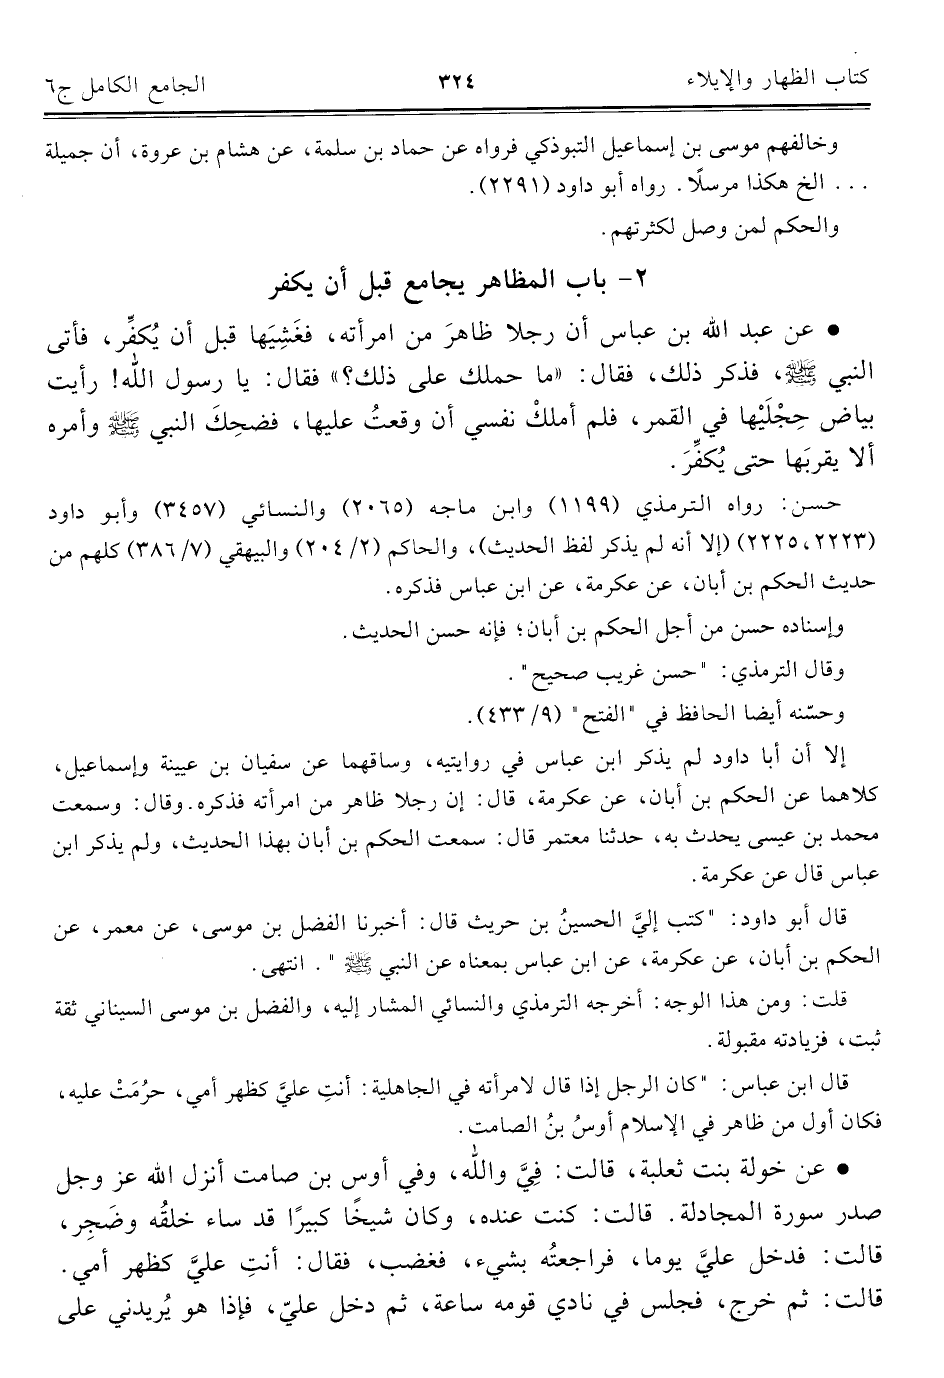 كتاب الظهار والإيلاء ٣٢٤ الجامع الكامل ج٦
وخالفهم موسى بن إسماعيل التبوذكي فرواه عن حماد بن سلمة، عن هشام بن عروة، أن جميلة
... الخ هكذا مرسلًا. رواه أبو داود (٢٢٩١).
والحكم لمن وصل لكثرتهم.
٢- باب المظاهر يجامع قبل أن يكفر
• عن عبد الله بن عباس أن رجلا ظاهرَ من امرأته، فغَشِيَها قبل أن يُكفِّر، فأتى
النبي ﷺ، فذكر ذلك، فقال: «ما حملك على ذلك؟» فقال: يا رسول الله! رأيت
بياض حِجْلَيْها في القمر، فلم أملكْ نفسي أن وقعتُ عليها، فضحِكَ النبي ﷺ وأمره
ألا يقربَها حتى يُكفِّرَ.
حسن: رواه الترمذي (١١٩٩) وابن ماجه (٢٠٦٥) والنسائي (٣٤٥٧) وأبو داود
(٢٢٢٣، ٢٢٢٥) (إلا أنه لم يذكر لفظ الحديث)، والحاكم (٢/ ٢٠٤) والبيهقي (٧/ ٣٨٦) كلهم من
حديث الحكم بن أبان، عن عكرمة، عن ابن عباس فذكره.
وإسناده حسن من أجل الحكم بن أبان؛ فإنه حسن الحديث.
وقال الترمذي: "حسن غريب صحيح".
وحسّنه أيضا الحافظ في "الفتح" (٩/ ٤٣٣).
إلا أن أبا داود لم يذكر ابن عباس في روايتيه، وساقهما عن سفيان بن عيينة وإسماعيل،
كلاهما عن الحكم بن أبان، عن عكرمة، قال: إن رجلا ظاهر من امرأته فذكره. وقال: وسمعت
محمد بن عيسى يحدث به، حدثنا معتمر قال: سمعت الحكم بن أبان بهذا الحديث، ولم يذكر ابن
عباس قال عن عكرمة.
قال أبو داود: "كتب إليَّ الحسينُ بن حريث قال: أخبرنا الفضل بن موسى، عن معمر، عن
الحكم بن أبان، عن عكرمة، عن ابن عباس بمعناه عن النبي ﷺ ". انتهى.
قلت: ومن هذا الوجه: أخرجه الترمذي والنسائي المشار إليه، والفضل بن موسى السيناني ثقة
ثبت، فزيادته مقبولة.
قال ابن عباس: "كان الرجل إذا قال لامرأته في الجاهلية: أنتِ عليَّ كظهر أمي، حرُمَتْ عليه،
فكان أول من ظاهر في الإسلام أوسُ بنُ الصامت.
• عن خولة بنت ثعلبة، قالت: فِيَّ واللهِ، وفي أوس بن صامت أنزل الله عز وجل
صدر سورة المجادلة. قالت: كنت عنده، وكان شيخًا كبيرًا قد ساء خلقُه وضَجِر،
قالت: فدخل عليَّ يوما، فراجعتُه بشيء، فغضب، فقال: أنتِ عليَّ كظهر أمي.
قالت: ثم خرج، فجلس في نادي قومه ساعة، ثم دخل عليّ، فإذا هو يُريدني على